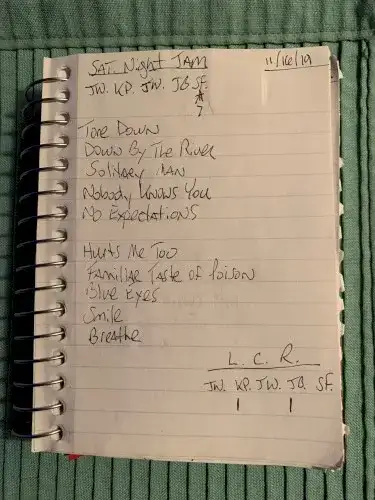 SAT. Night JAM 11/16/19
JW. KP. JW. JB SF.
7
Tore Down
Down By The River
Solitary Man
Nobody Knows You
No Expectations
Hurts Me Too
Familiar Taste of Poison
Blue Eyes
Smile
Breathe
L. C. R.
JW. KP. JW. JB. SF.
| |